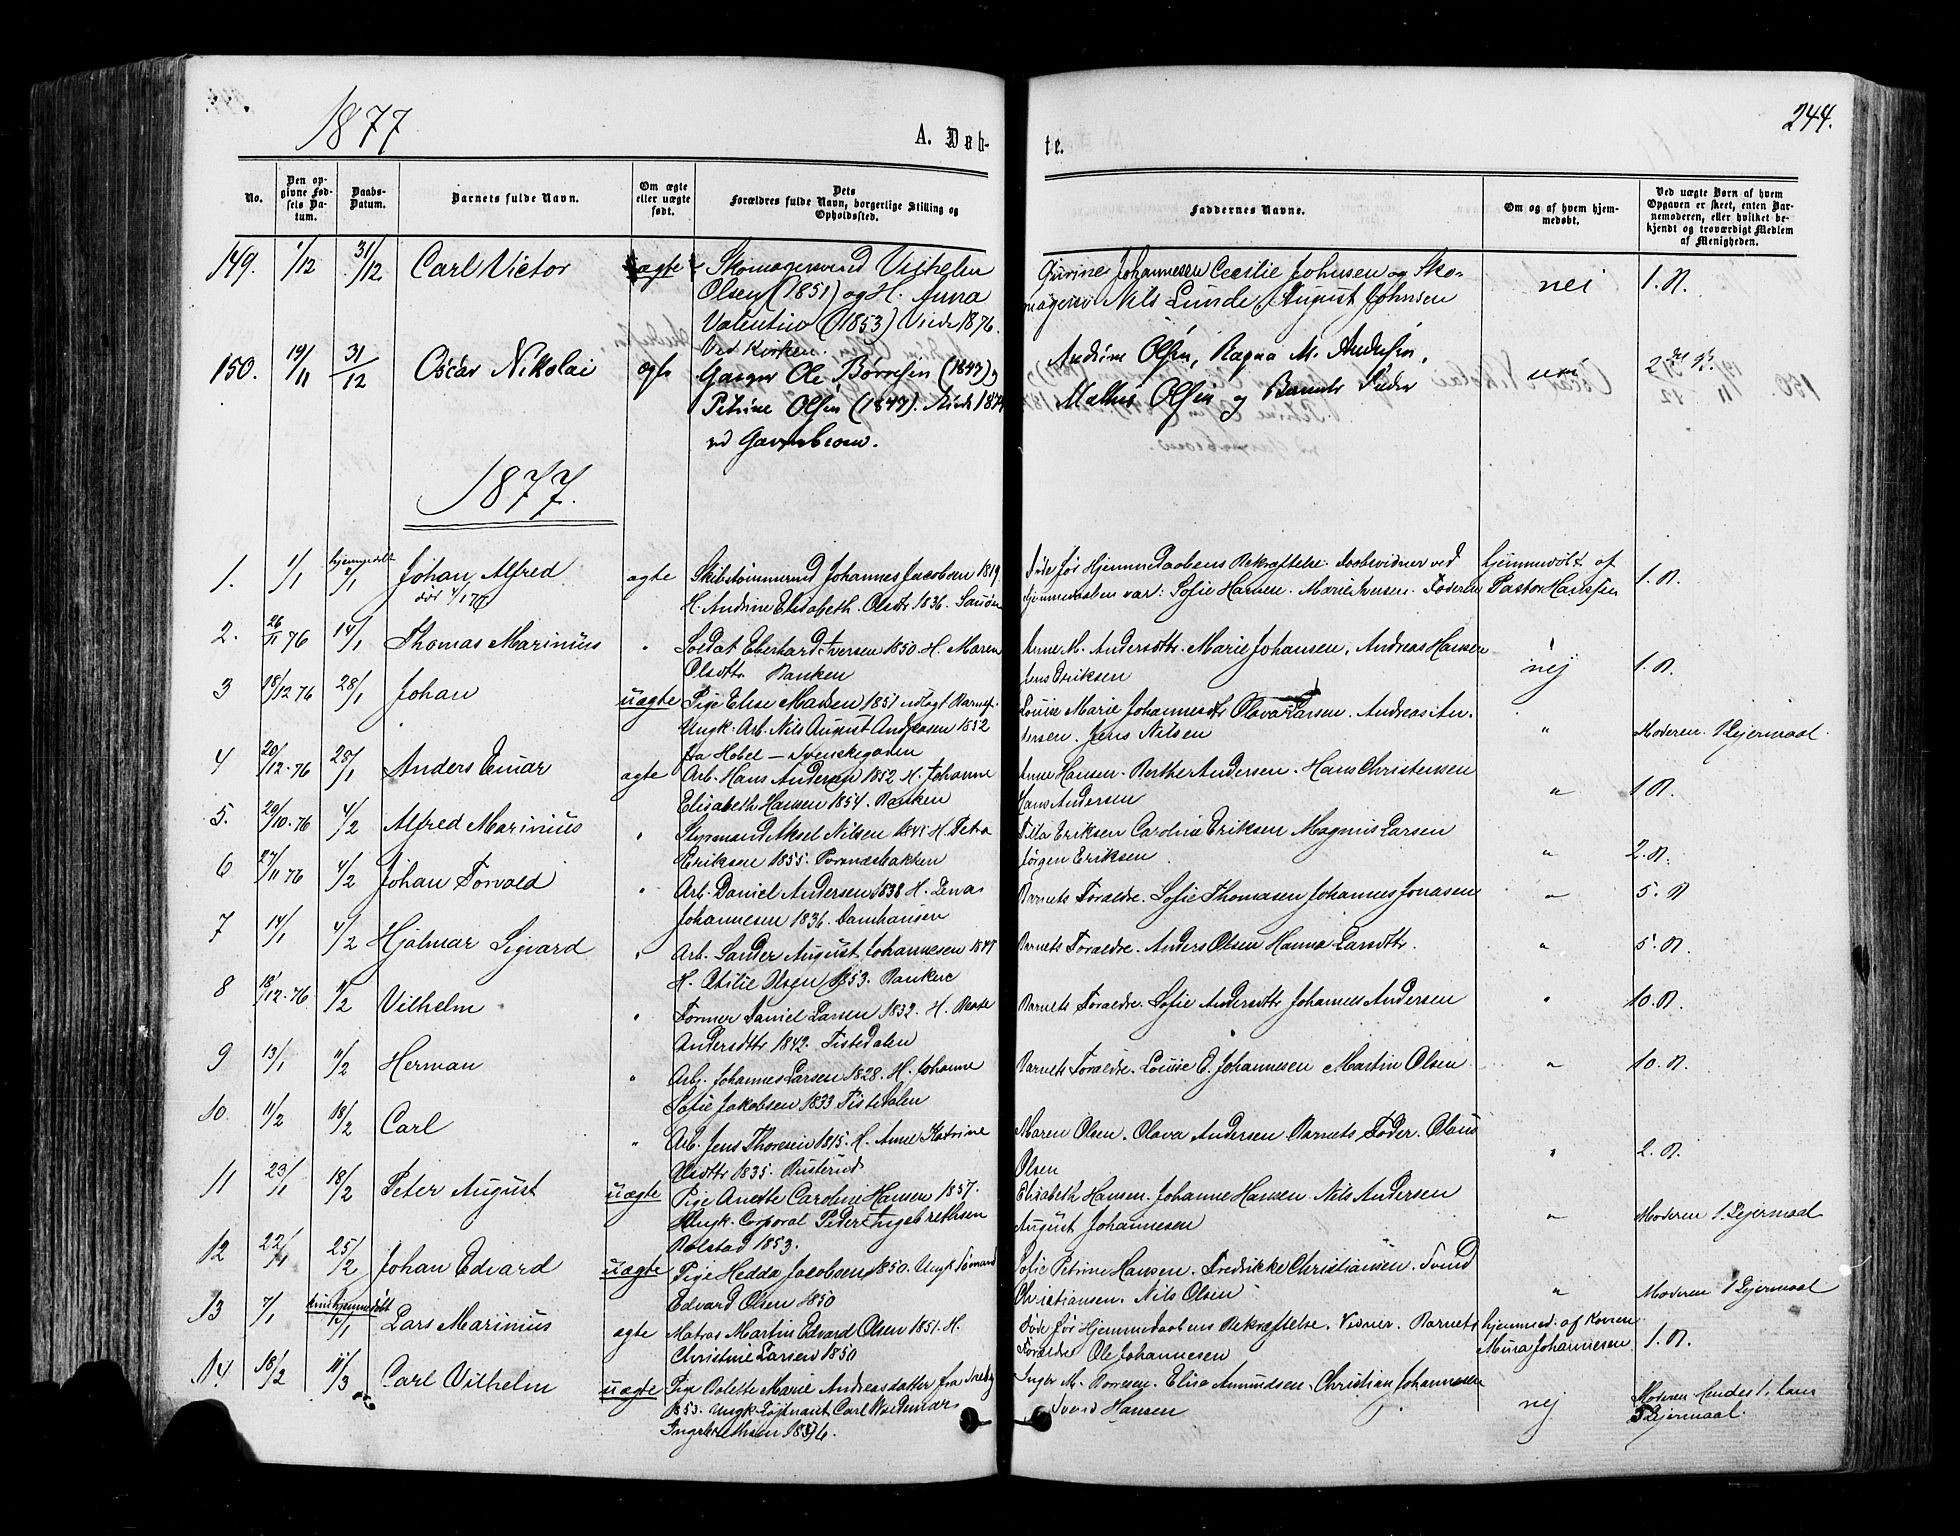 1877
A. Døb-
te.
244.
No.
Den opgivne Fødsels Datum.
Daabs-Datum.
Barnets fulde Navn.
Om ægte eller uægte født.
Dets Forældres fulde Navn, borgerlige Stilling og Opholdssted.
Faddernes Navne.
Om og af hvem hjemmedøbt.
Ved uægte Børn af hvem Opgaven er skeet, enten Barnemoderen, eller hvilket bekjendt og troværdigt Medlem af Menigheden.
149. 1/12 31/12 Carl Victor ægte Skomagersvend Vilhelm
Olsen (1851) og H. Anna
Valentin (1853) Viede 1876.
Ved Kirken.
Gurine Johannesen Cecilie Johnsen og Sko-
magersv Nils Lunde, August Johnsen
nei 1. N.
150. 19/11 31/12 Oscar Nikolai ægte
Gasver Ole Børresen (1847) og
Petrine Olsen (1847). Viede 1874
ved Gasverket.
Andrine Olsen, Ragna M. Andersen,
Mathis Olsen og Barnets Fader
nei
1877.
1. 1/1 hjemmedøbt 2/1 Johan Alfred
død 4/1 77
ægte Skibstømmermd Johannes Jacobsen 1819
H. Andrine Elisabeth Olsdtr 1836. Sauøen
Døde før Hjemmedaabens Bekræftelse. Daabsvidner ved
Hjemmedaaben var: Sofie Hansen. Marie Iversen. Faderen
hjemmedøbt af
Pastor Hanssen
1. N.
2. 26/11 76 14/1 Thomas Marinius " Soldat Eberhard Iversen 1850. H. Maren
Olsdtr Banken
Anne M. Andersdttr. Marie Johansen. Andreas Hansen
Jens Eriksen
nej 1. N.
3 18/12 76 28/1 Johan uægte Pige Elise Madsen 1851 udlagt Barnef.
Ungk. Arb. Nils August Andreasen 1852
fra Hobel — Svenskegaden
Louise Marie Johannesdtr Olava Larsen. Andreas An-
dersen. Jens Nilsen
" Moderen 1 Lejermaal.
4 20/12 76 28/1 Anders Einar ægte Arb. Hans Andersen 1852 H. Johanne
Elisabeth Hansen 1854. Banken
Anne Hansen. Berthe Andersen. Hans Christensen
Hans Andersen
" 1 N.
5. 29/10 76 4/2 Alfred Marinius " Styrmand Aksel Nilsen 1848 H. Petra
Eriksen 1855.
Tilla Eriksen Caroline Eriksen Magnus Larsen
Jørgen Eriksen
" 2. N.
6 27/11 76 4/2 Johan Torvald " Arb. Daniel Andersen 1838 H. Lena
Johannesen 1836. Damhausen
Barnets Forældre. Sofie Thomasen Johannes Jonasen
" 5. N
7 14/1 4/2 Hjalmar Sigvard " Arb. Sander August Johannesen 1848
H. Otilie Olsen 1853. Banken
Barnets Forældre. Anders Olsen Hanna Larsdtr.
" 5. N.
8 18/12 76 11/2 Vilhelm " Former Daniel Larsen 1832. H. Beate
Andersdttr 1842. Tistedalen
Barnets Forældre. Sofie Andersdttr Johannes Andersen
" 10. N.
9 13/1 11/2 Herman " Arb. Johannes Larsen 1828. H. Johanne
Sofie Jakobsen 1833 Tistedalen
Barnets Forældre. Louise E. Johannesen Martin Olsen
" 10. N.
10. 11/2 18/2 Carl " Arb. Jens Thoresen 1815. H. Anne Katrine
Olsdttr 1835. Busterud
Maren Olsen. Olava Andersen Barnets Fader. Olaus
Olsen
" 2. N.
11 23/1 18/2 Peter August uægte Pige Anette Caroline Hansen 1857.
Ungk. Corporal Peder Ingebrethsen
Rolstad 1853.
Elisabeth Hansen. Johanne Hansen Nils Andersen
August Johannesen
" Moderen 1. Lejermaal
12 22/1 25/2 Johan Edvard uægte Pige Hedda Jacobsen 1850. Ungk Sømand
Edvard Olsen 1850
Sofie Petrine Hansen. Fredrikke Christiansen. Svend
Christiansen. Nils Olsen
" Moderen 1 Lejermaal
13 7/1 kun hjemmedøbt Lars Marinius ægte Matros Martin Edvard Olsen 1851. H.
Christine Larsen 1850
Døde før Hjemmedaabens Bekræftelse. Vidner. Barnets
Forældre Ole Johannesen
hjemmed. af Konen
Mina Johannesen
1. N.
14. 18/2 11/3 Carl Vilhelm uægte Pige Bolette Marie Andreasdatter fra
1853. Ungk. Løjtnant Carl Woldemar
Ingebrethsen
Inger M. Borresen. Elise Amundsen. Christian Johannesen
Svend Hansen
nej Moderen hendes 1, hans
3 Lejermaal.